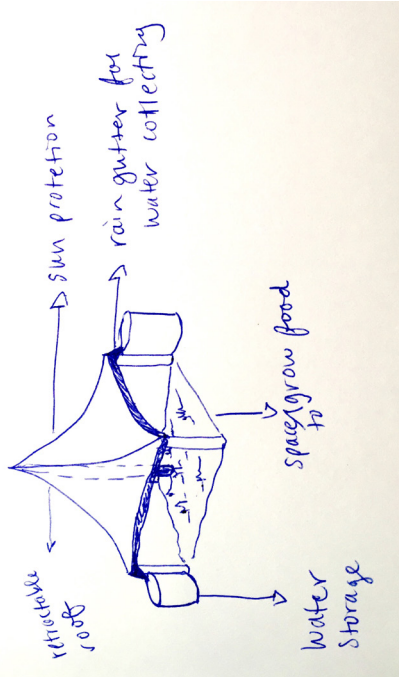 retractable
roof
sun protetion
rain gutter for
water collecting
space to grow food
Water
Storage